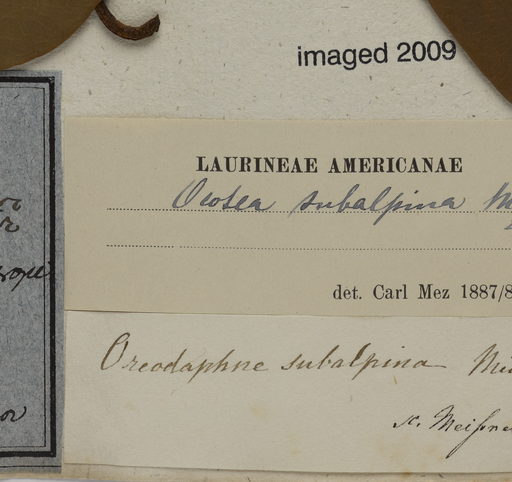 imaged 2009
LAURINEAE AMERICANAE
Ocotea subalpina M
det. Carl Mez 1887/8
Oreodaphne subalpina